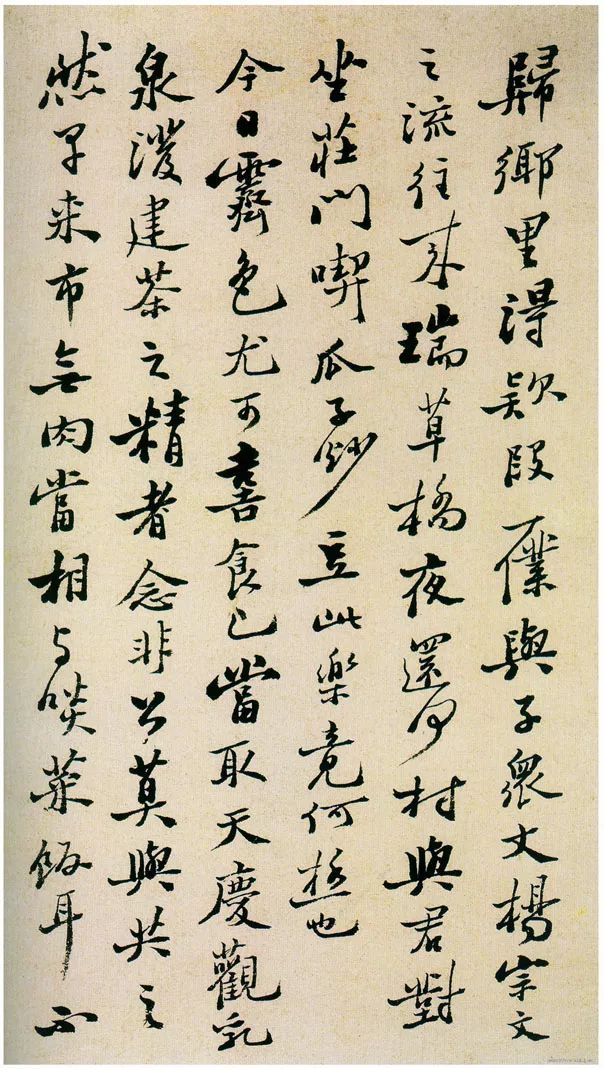 歸鄉里得欵段一僕與子眾丈楊宗文
之流往來瑞草橋夜還何村與君對
坐莊門喫瓜子炒豆此樂竟何極也
今日霽色尤可喜食已當取天慶觀乳
泉潑建茶之精者念非公莫與共之
然早来市無肉當相与啖菜飯耳不